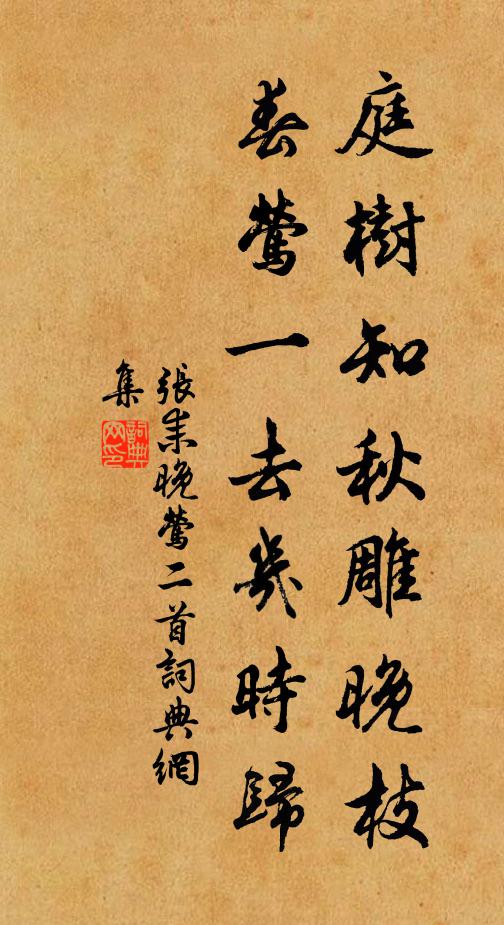 庭樹知秋雕晚枝
春鶯一去幾時歸
張耒晚鶯二首詞典網
集
詞典網印